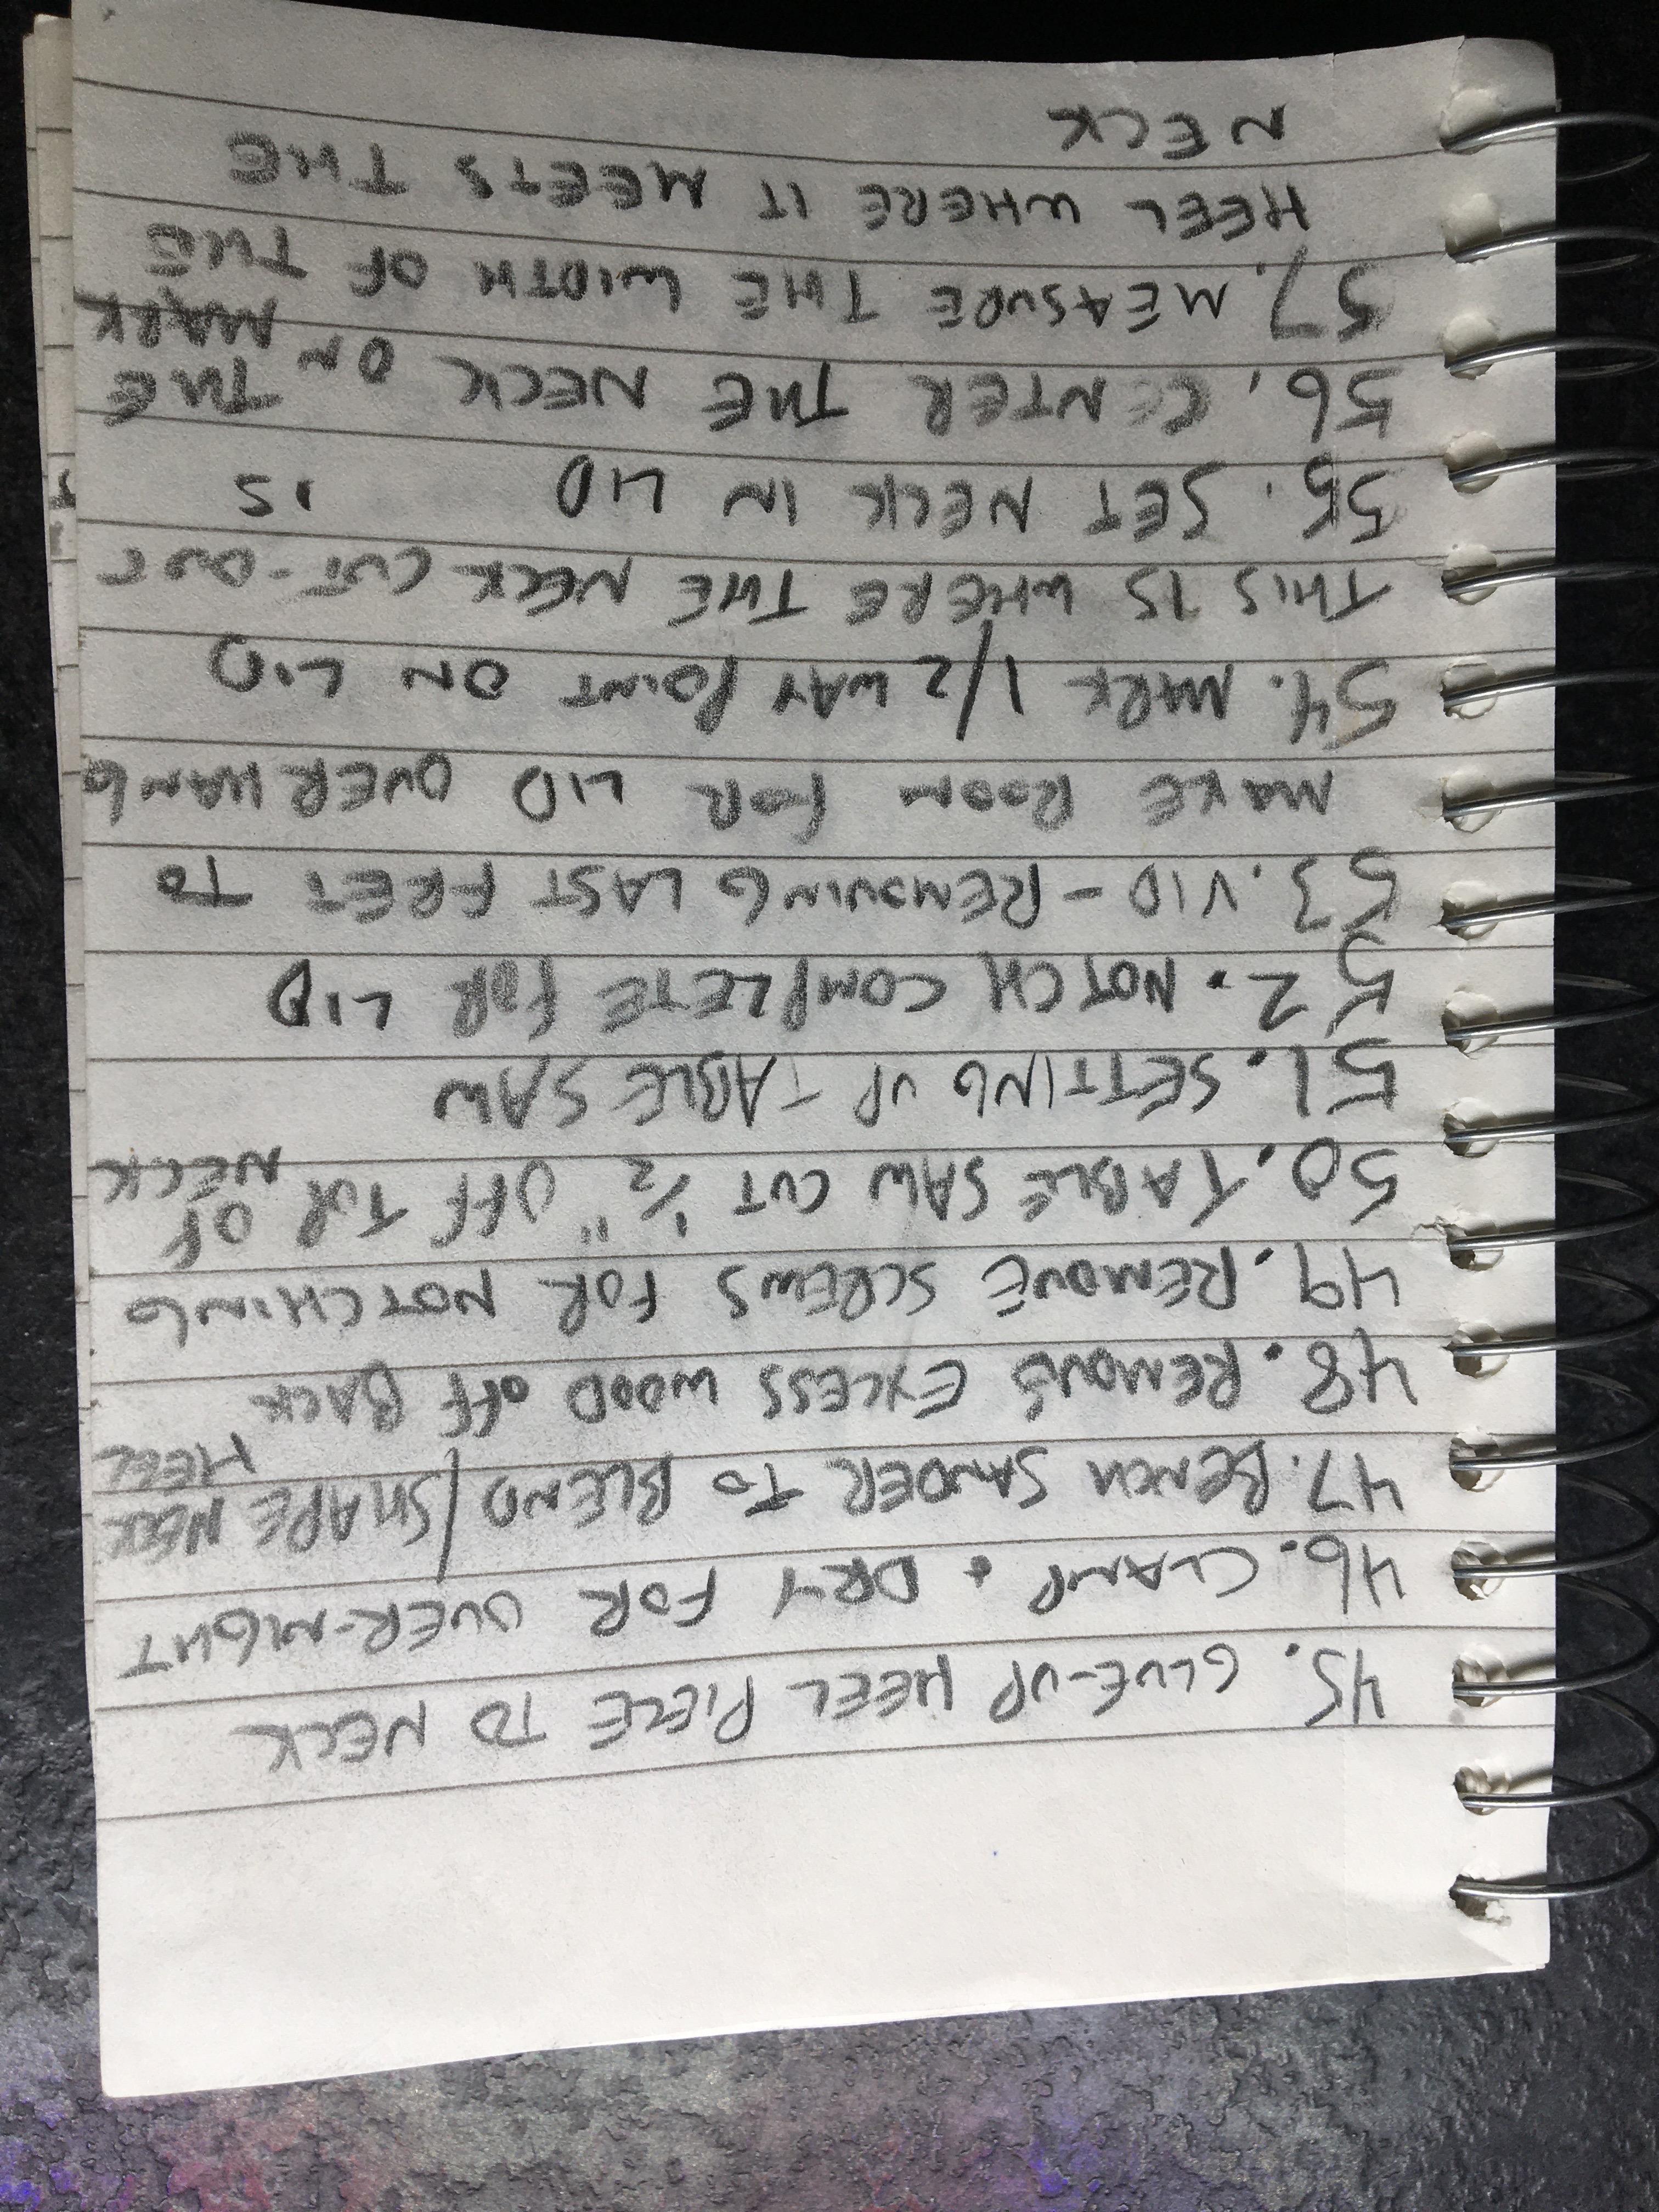 45. GLUE-UP HEEL PIECE TO NECK
46. CLAMP + DRY FOR OVER-NIGHT
47. BENCH SANDER TO BLEND/SHAPE NECK
HEEL
48. REMOVE EXCESS WOOD OFF BACK
49. REMOVE SCREWS FOR NOTCHING
50. TABLE SAW CUT 1/2" OFF TOP OF
NECK
51. SETTING UP TABLE SAW
52. NOTCH COMPLETE FOR LID
53. VID - REMOVING LAST FRET TO
MAKE ROOM FOR LID OVERHANG
54. MARK 1/2 WAY POINT ON LID
THIS IS WHERE THE NECK CUT-OUT
IS
55. SET NECK IN LID
56. CENTER THE NECK ON THE
MARK
57. MEASURE THE WIDTH OF THE
HEEL WHERE IT MEETS THE
NECK